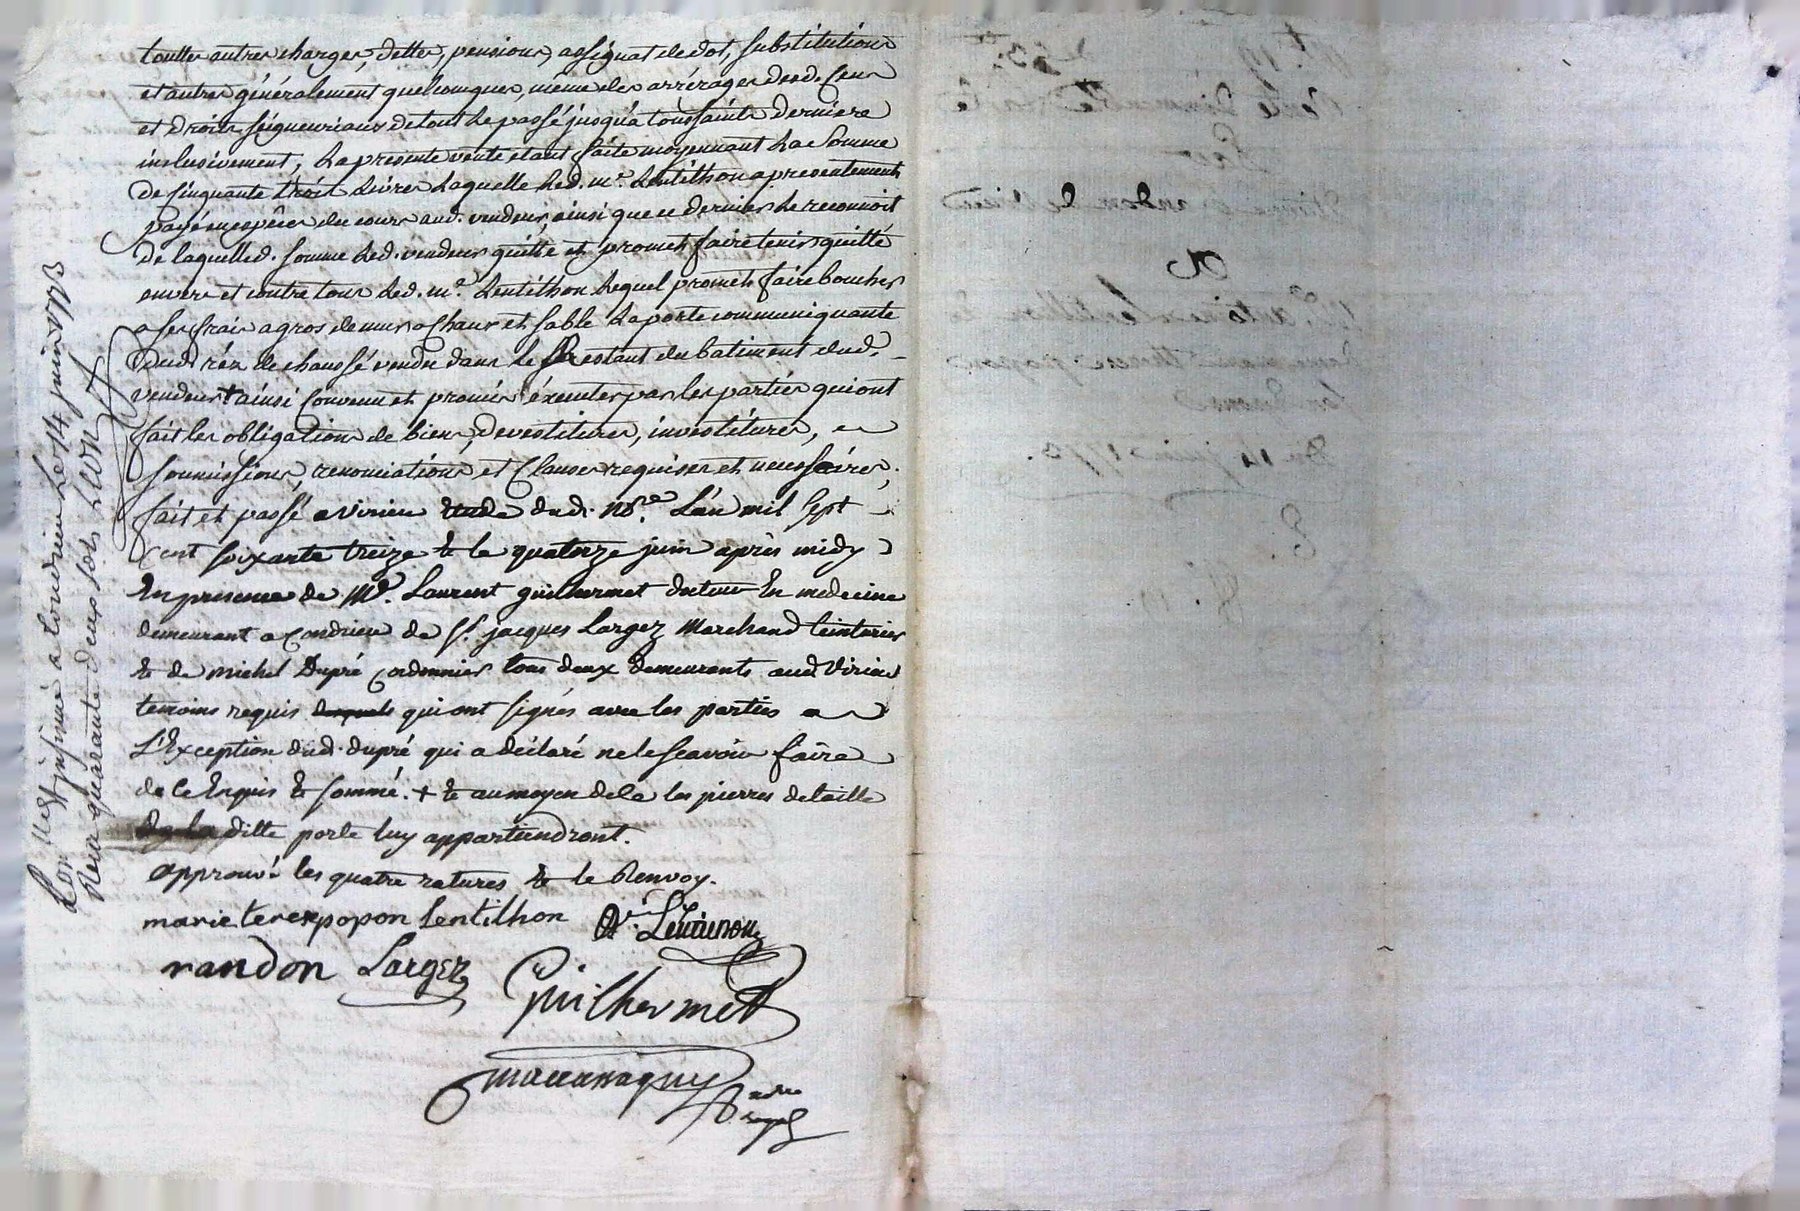 touttes autres charges, dettes, pensions, assignat de dot, substitutions
et autres généralement quelconques, même des arrérages desd. Cens
et droits seigneuriaux de tout le passé jusqu'a toussaints derniere
inclusivement, La presente vente etant faite moyennant La somme
de Cinquante trois Livres Laquelle Led. mr. Lentilhon a presentement
payé en espèces du cours aud. vendeur, ainsi que ce dernier Le reconnoit
de laquelle d. somme Led. vendeur quitte et promet faire tenir quitte
envers et contre tous Led. mr. Lentilhon Lequel promet faire boucher
a ses frais a gros de mur a Chaux et sable La porte communiquante
dud. réz de chaussé vendu dans le restant du batiment dud.
vendeur + ainsi Convenu et promis éxecuter par les parties qui ont
fait les obligations de biens, devestitures, investitures,
soumissions, renonciations et Clauses requises et necessaires,
fait et passé a Virieu etude dud. nore. L'an mil sept
cent soixante treize & le quatorze juin après midy
En presence de Mr. Laurent guilhermet docteur En medecine
demeurant a Condrieu de sr. jacques Larger Marchand teinturier
& de michel Dupré cordonnier tous deux demeurants aud Virieu
temoins requis qui ont signés avec les parties a
L'Exception dud. dupré qui a déclaré ne le scavoir faire
de ce Enquis & sommé. + & au moyen de ce les pierres de taille
de la ditte porte luy appartiendront.
approuvé les quatre ratures & le Renvoy.
marie terese popon Lentilhon Ae. Lentilhon
randon Larger
Guilhermet
nore
royal
Con est insinué a Condrieu Le 14 juin 1773
Reçu quarante deux sols